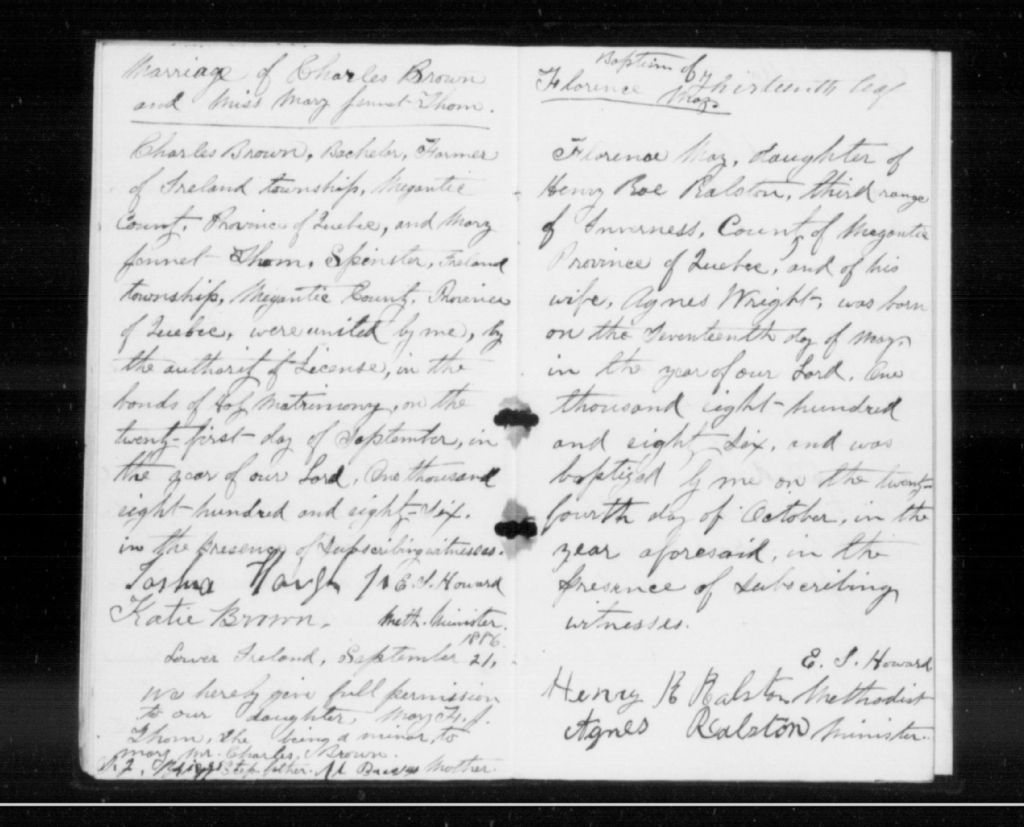 Marriage of Charles Brown
and Miss Mary Jennet Thom.
Charles Brown, Bachelor, Farmer
of Ireland township, Megantic
County, Province of Quebec, and Mary
Jennet Thom, Spinster, Ireland
township, Megantic County, Province
of Quebec, were united by me, by
the authority of License, in the
bonds of Holy Matrimony, on the
twenty-first day of September, in
the year of our Lord, One thousand
eight hundred and eighty-six.
in the presence of subscribing witnesses.
E. S. Howard
Katie Brown. Meth. Minister.
1886
Lower Ireland, September 21,
We hereby give full permission
to our daughter, Mary J.
Thom, she being a minor, to
mary Mr. Charles Brown.
Step father. Mother.
Baptism of
Florence May Thirteenth leaf
Florence May, daughter of
Henry Roe Ralston, third range
of Inverness, County of Megantic
Province of Quebec, and of his
wife, Agnes Wright, was born
on the Seventeenth day of May,
in the year of our Lord, One
thousand eight-hundred
and eighty Six, and was
baptized by me on the twenty-
fourth day of October, in the
year aforesaid, in the
presence of subscribing
witnesses.
E. S. Howard
Henry R Ralston Methodist
Agnes Ralston Minister.